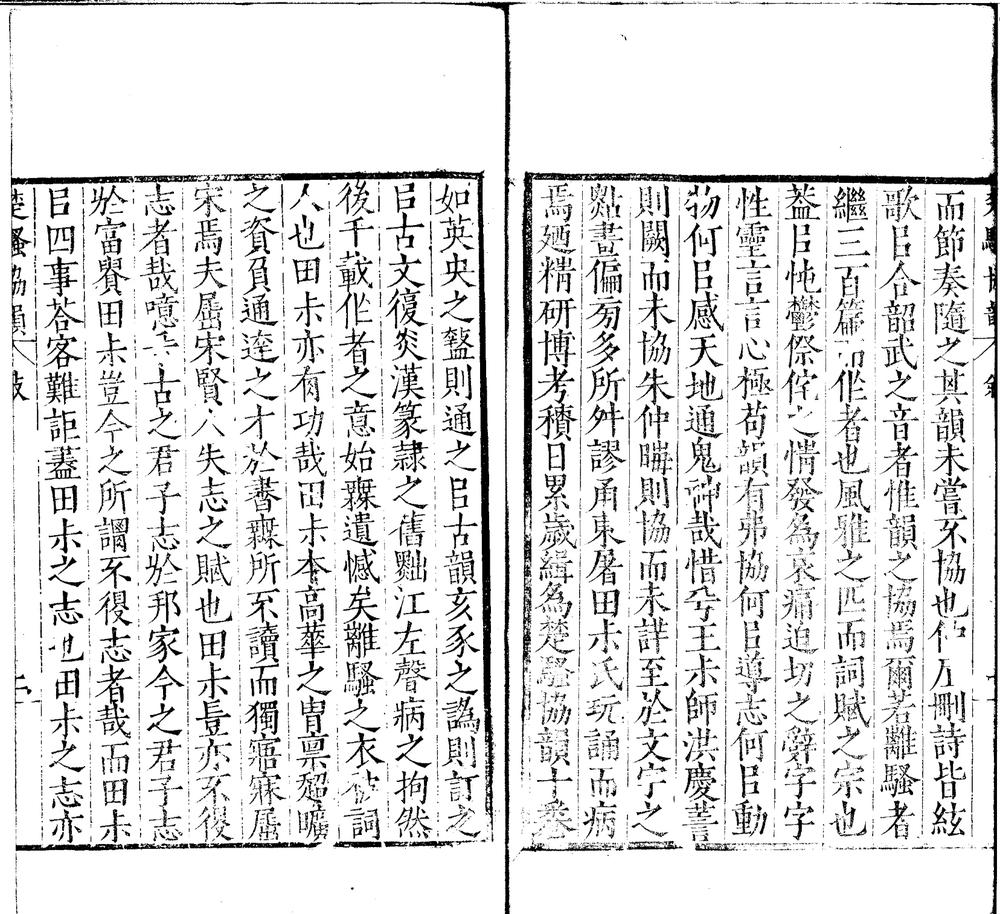 楚騷協韻 敘
而節奏隨之其韻未嘗不協也仲尼刪詩皆絃
歌㠯合韶武之音者惟韻之協焉爾若離騷者
繼三百篇而作者也風雅之匹而詞賦之宗也
蓋㠯忳鬱傺侘之情發為哀痛迫切之辭字字
性靈言言心極苟韻有弗協何㠯導志何㠯動
物何㠯感天地通鬼神哉惜兮王尗師洪慶善
則闕而未協朱仲晦則協而未詳至於文字之
點畫偏旁多所舛謬甬東屠田尗氏玩誦而病
焉廼精研博考積日累歲緝為楚騷協韻十卷
如英央之盭則通之㠯古韻亥豕之譌則訂之
㠯古文復炎漢篆隸之舊黜江左聲病之拘然
後千載作者之意始無遺憾矣離騷之衣被詞
人也田尗亦有功哉田尗本高華之胄稟超曠
之資負通達之才於書無所不讀而獨寤寐屈
宋焉夫屈宋賢人失志之賦也田尗豈亦不得
志者哉噫乎古之君子志於邦家今之君子志
於富貴田尗豈今之所謂不得志者哉而田尗
㠯四事荅客難詎蓋田尗之志也田尗之志亦
楚騷協韻 敘 二